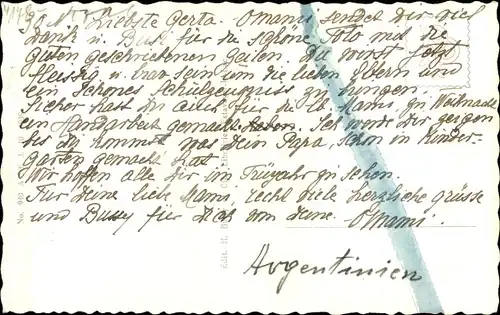 Liebste Gerta. Omami sendet Dir viel
Dank u. Bussi für die schöne Foto und die
guten geschriebenen Zeilen. Du wirst jetzt
fleissig u. brav sein um die lieben Eltern und
ein schönes Schulzeugniss zu bringen.
Sicher hast Du auch für die lb Mami zu Weihnacht
ein Handarbeit gemacht haben. Ich werde Dir zeigen
bis du kommst was Dein Papa, schon in Kinder-
garten gemacht hat.
Wir hoffen alle Dir im Frühjahr zu sehen.
Für Deine liebe Mami, recht viele herzliche Grüsse
und Bussy für Dich von Deine Omami.
Argentinien